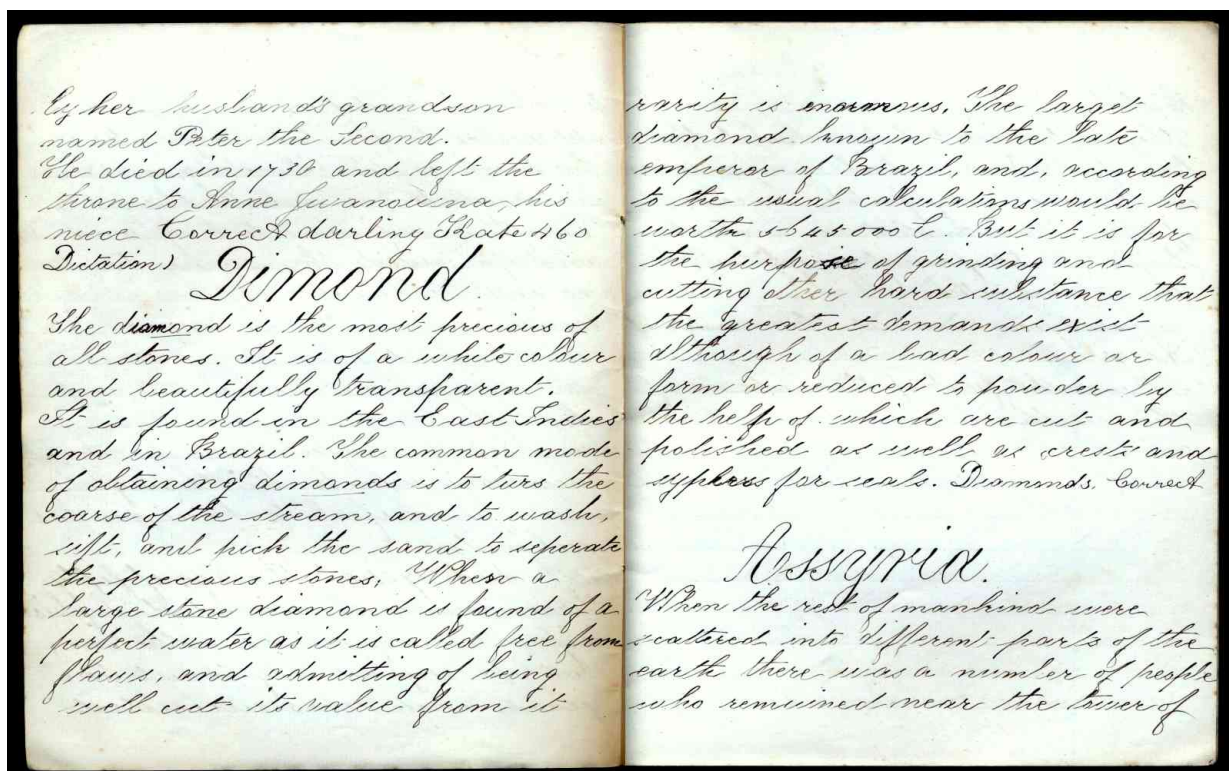 by her husband's grandson
named Peter the Second.
He died in 1730 and left the
throne to Anne Iwanowna, his
niece Correct darling Kate 460
Dictation)
Dimond
The diamond is the most precious of
all stones. It is of a while colour
and beautifully transparent.
It is found in the East Indies
and in Brazil. The common mode
of obtaining dimonds is to turs the
coarse of the stream, and to wash,
sift, and pick the sand to seperate
the precious stones, When a
large stone diamond is found of a
perfect water as it is called free from
flaws, and admitting of being
well cut its value from it
rarity is enormous. The larget
diamond known to the late
emperor of Brazil, and, according
to the usual calculations would be
worth 5645000 £. But it is for
the purpose of grinding and
cutting other hard substance that
the greatest demands exist
although of a bad colour or
form or reduced to powder by
the help of which are cut and
polished as well as crests and
for seals. Diamonds. Correct
Assyria.
When the rest of mankind were
scattered into different parts of the
earth there was a number of people
who remained near the tower of